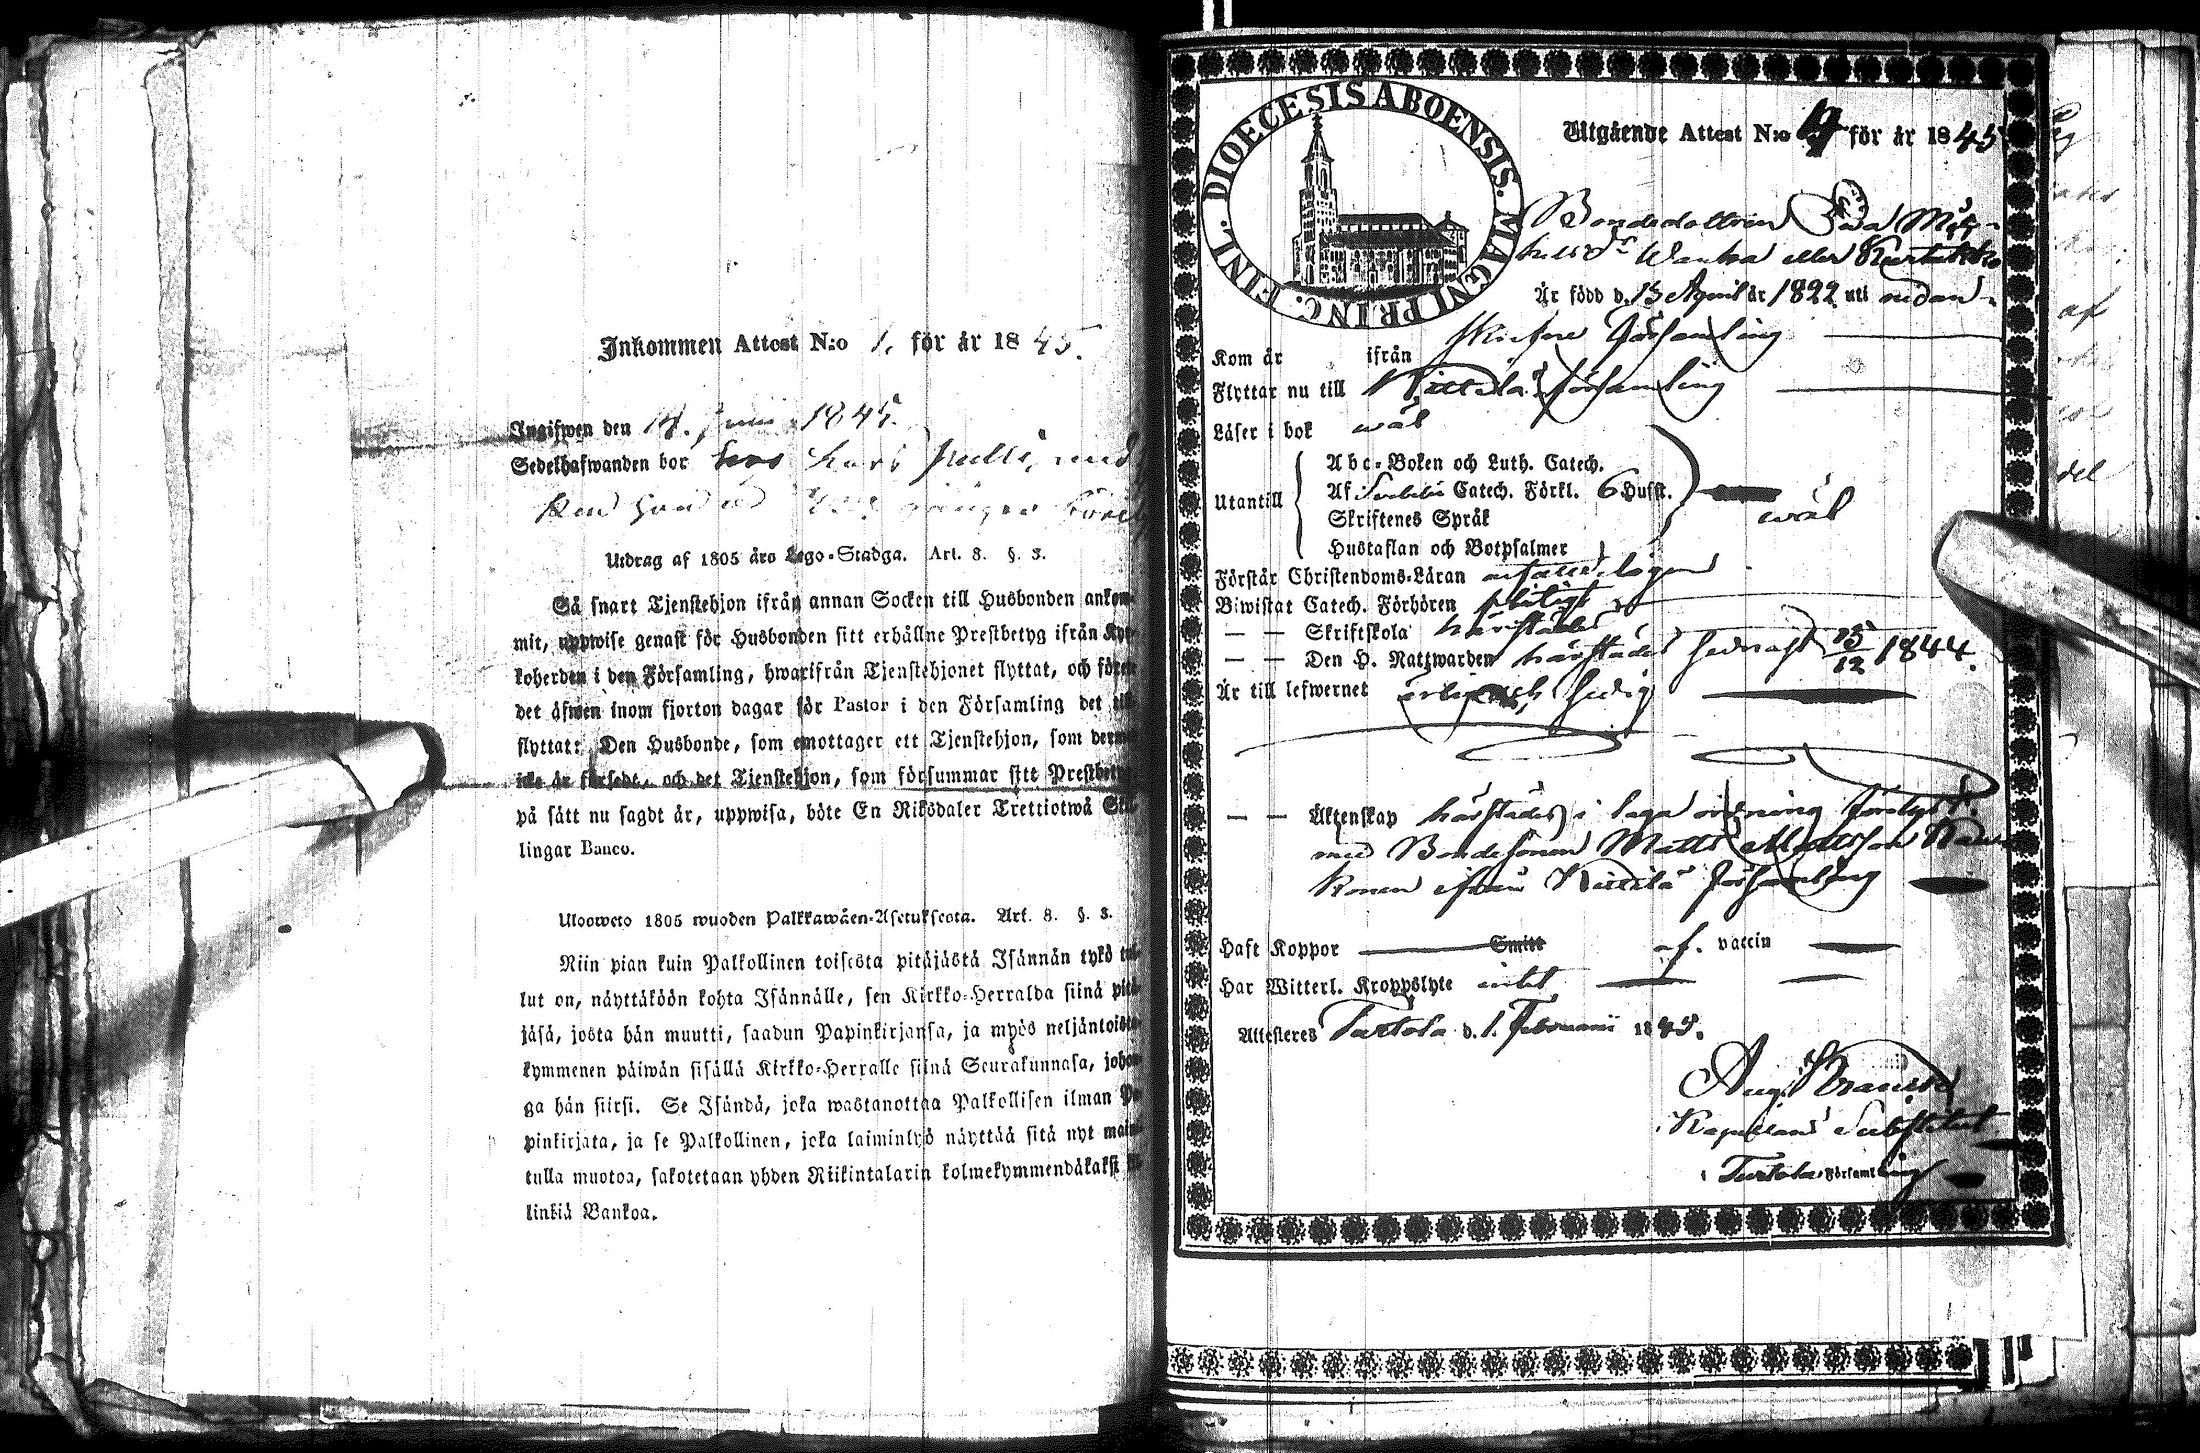 Inkommen Attest N:o 1. för år 1845.
Ingifwen den 14. Juni 1845.
Sedelhafwanden bor hos Lars
Utdrag af 1805 års Lego-Stadga. Art. 8. §. 3.
Så snart Tjenstehjon ifrån annan Socken till Husbonden ankom-
mit, uppwise genast för Husbonden sitt erhållne Prestbetyg ifrån Kyr-
koherden i den Församling, hwarifrån Tjenstehjonet flyttat, och före
det äfwen inom fjorton dagar för Pastor i den Församling det
flyttat: Den Husbonde, som emottager ett Tjenstehjon, som
icke är försedt, och det Tjenstehjon, som försummar sitt Prestbetyg
på sätt nu sagdt är, uppwisa, böte En Riksdaler Trettiotwå
lingar Banco.
Uloswето 1805 wuoden Palkkawäen-Asetuksesta. Art. 8. §. 3.
Niin pian kuin Palkollinen toisesta pitäjästä Isännän tykö tul-
lut on, näyttäköön kohta Isännälle, sen Kirkko-Herralda siinä pitä-
jäsä, josta hän muutti, saadun Papinkirjansa, ja myös neljäntoista-
kymmenen päiwän sisällä Kirkko-Herralle siinä Seurakunnasa, johon-
ga hän siirsi. Se Isändä, joka wastanottaa Palkollisen ilman Pa-
pinkirjata, ja se Palkollinen, joka laiminlyö näyttää sitä nyt mai-
tulla muotoa, sakotetaan yhden Riikintalarin kolmekymmendäkaksi
linkiä Bankoa.
DIOECESIS ABOENSIS. MAGNI PRINC. FINL.
Utgående Attest N:o för år 1845
Bondedottren Eva
Wanha eller
Är född d. 13 April år 1822 uti nedan-
skrefne Församling
Kom år ifrån
Flyttar nu till Kittilä församling
Läser i bok wäl
Utantill
Abc-Boken och Luth. Catech.
Af Svebilii Catech. Förkl. 6 Hufst.
Skriftenes Språk
Hustaflan och Botpsalmer
wäl
Förstår Christendoms-Läran
Biwistat Catech. Förhören flitigt
— — Skriftskola härstädes
— — Den H. Nattwarden härstädes sednast 15/12 1844.
Är till lefwernet ärlig och sedig
— — Äktenskap härstädes i laga ordning förelyst
med Bondesonen Matts Mattsson
konen ifrån Kittilä församling
Haft Koppor Smitt af. vaccin
Har Witterl. Kroppslyte intet
Attesteres Turtola d. 1. Februarii 1845.
Aug.
Kapellans Substitut
i Turtola Församling